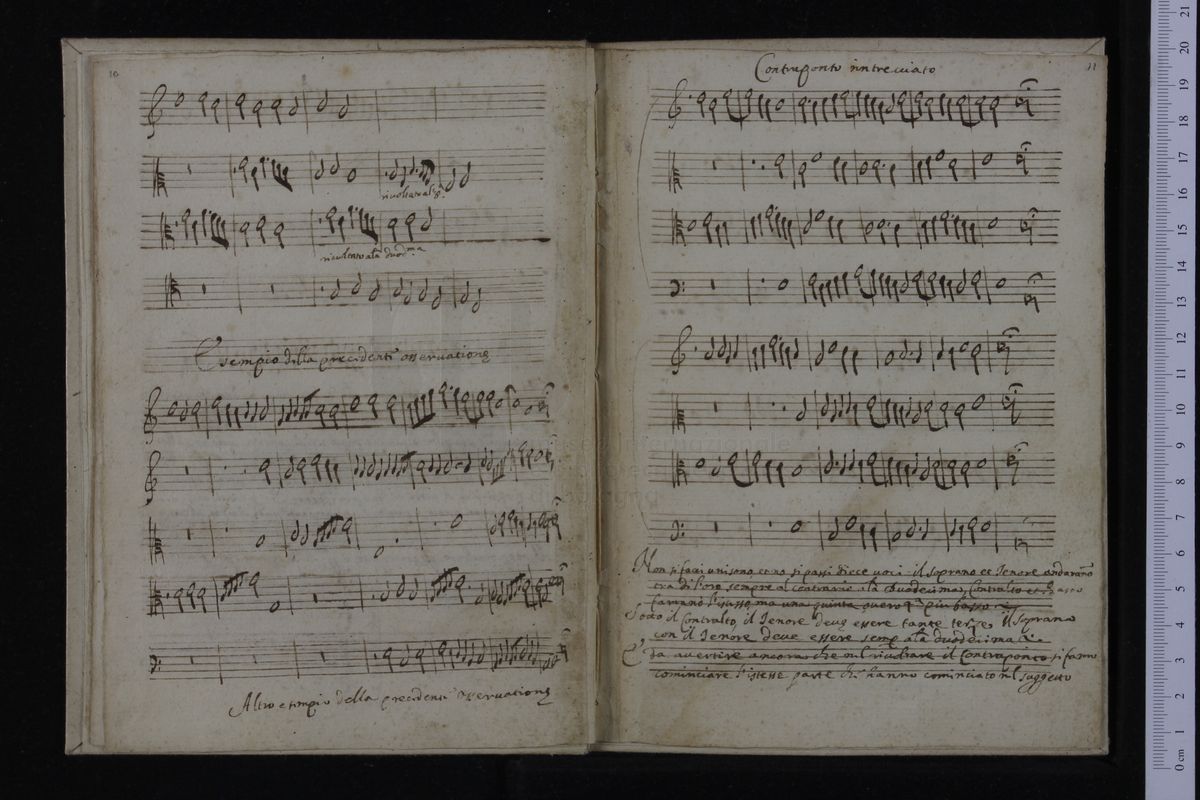 10
rivoltato al
rivoltato alla duodma
Esempio della precedenti osservatione
Altro esempio della precedenti osservatione
11
Contraponto intrecciato
Non si facci unisono et no si passi diece voci il soprano et Tenore andaranno
tra di loro sempre al contrario alla duodecima, Contralto et Basso
farranno l'istesso, ma una quinta overo 4 più basso
Sotto il Contralto, il Tenore deve essere tante terze, Il soprano
con il Tenore deve essere semp alla duodecima
E da avertire ancora che nel rivoltare il Contraponto si fanno
cominciare l'istesse parte che hanno cominciato nel soggetto
0 cm 1 2 3 4 5 6 7 8 9 10 11 12 13 14 15 16 17 18 19 20 21